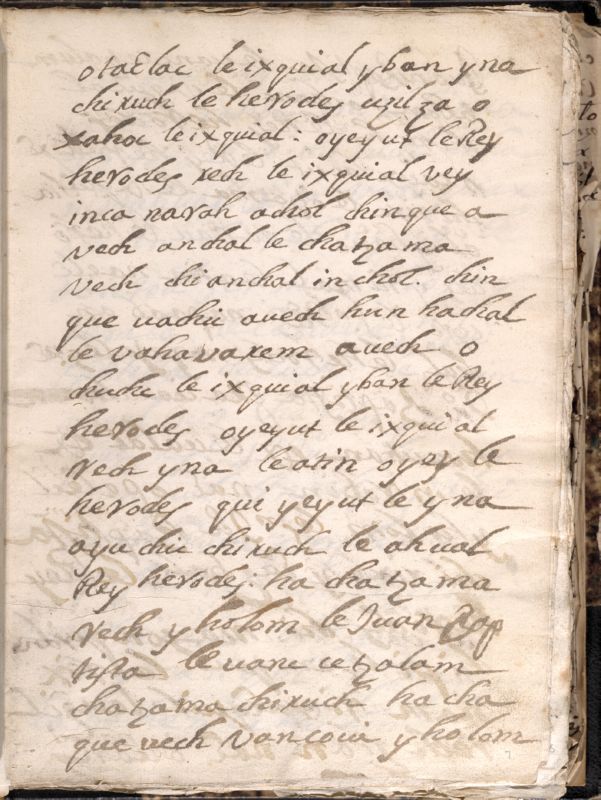 otaElac le ixquial yban yna
chixuch le herodes uzilza o
xahoc le ixquial: oyeyut le Rey
herodes rech le ixquial vey
inca narah achol chinque a
vech anchal le chatzama
vech chi anchal inchol. chin
que uachic auech hun hachal
le vahavarem auech o
chuchu le ixquial yban le Rey
herodes oyeyut le ixquial
rech yna leatin oyey le
herodes qui yeyut le yna
ayu chic chixuch le ahual
Rey herodes; ha chatzama
rech y holom le Juan Bap
tista le uanc cetzalam
chatzama chixuch ha cha
que vech vancoui y holom